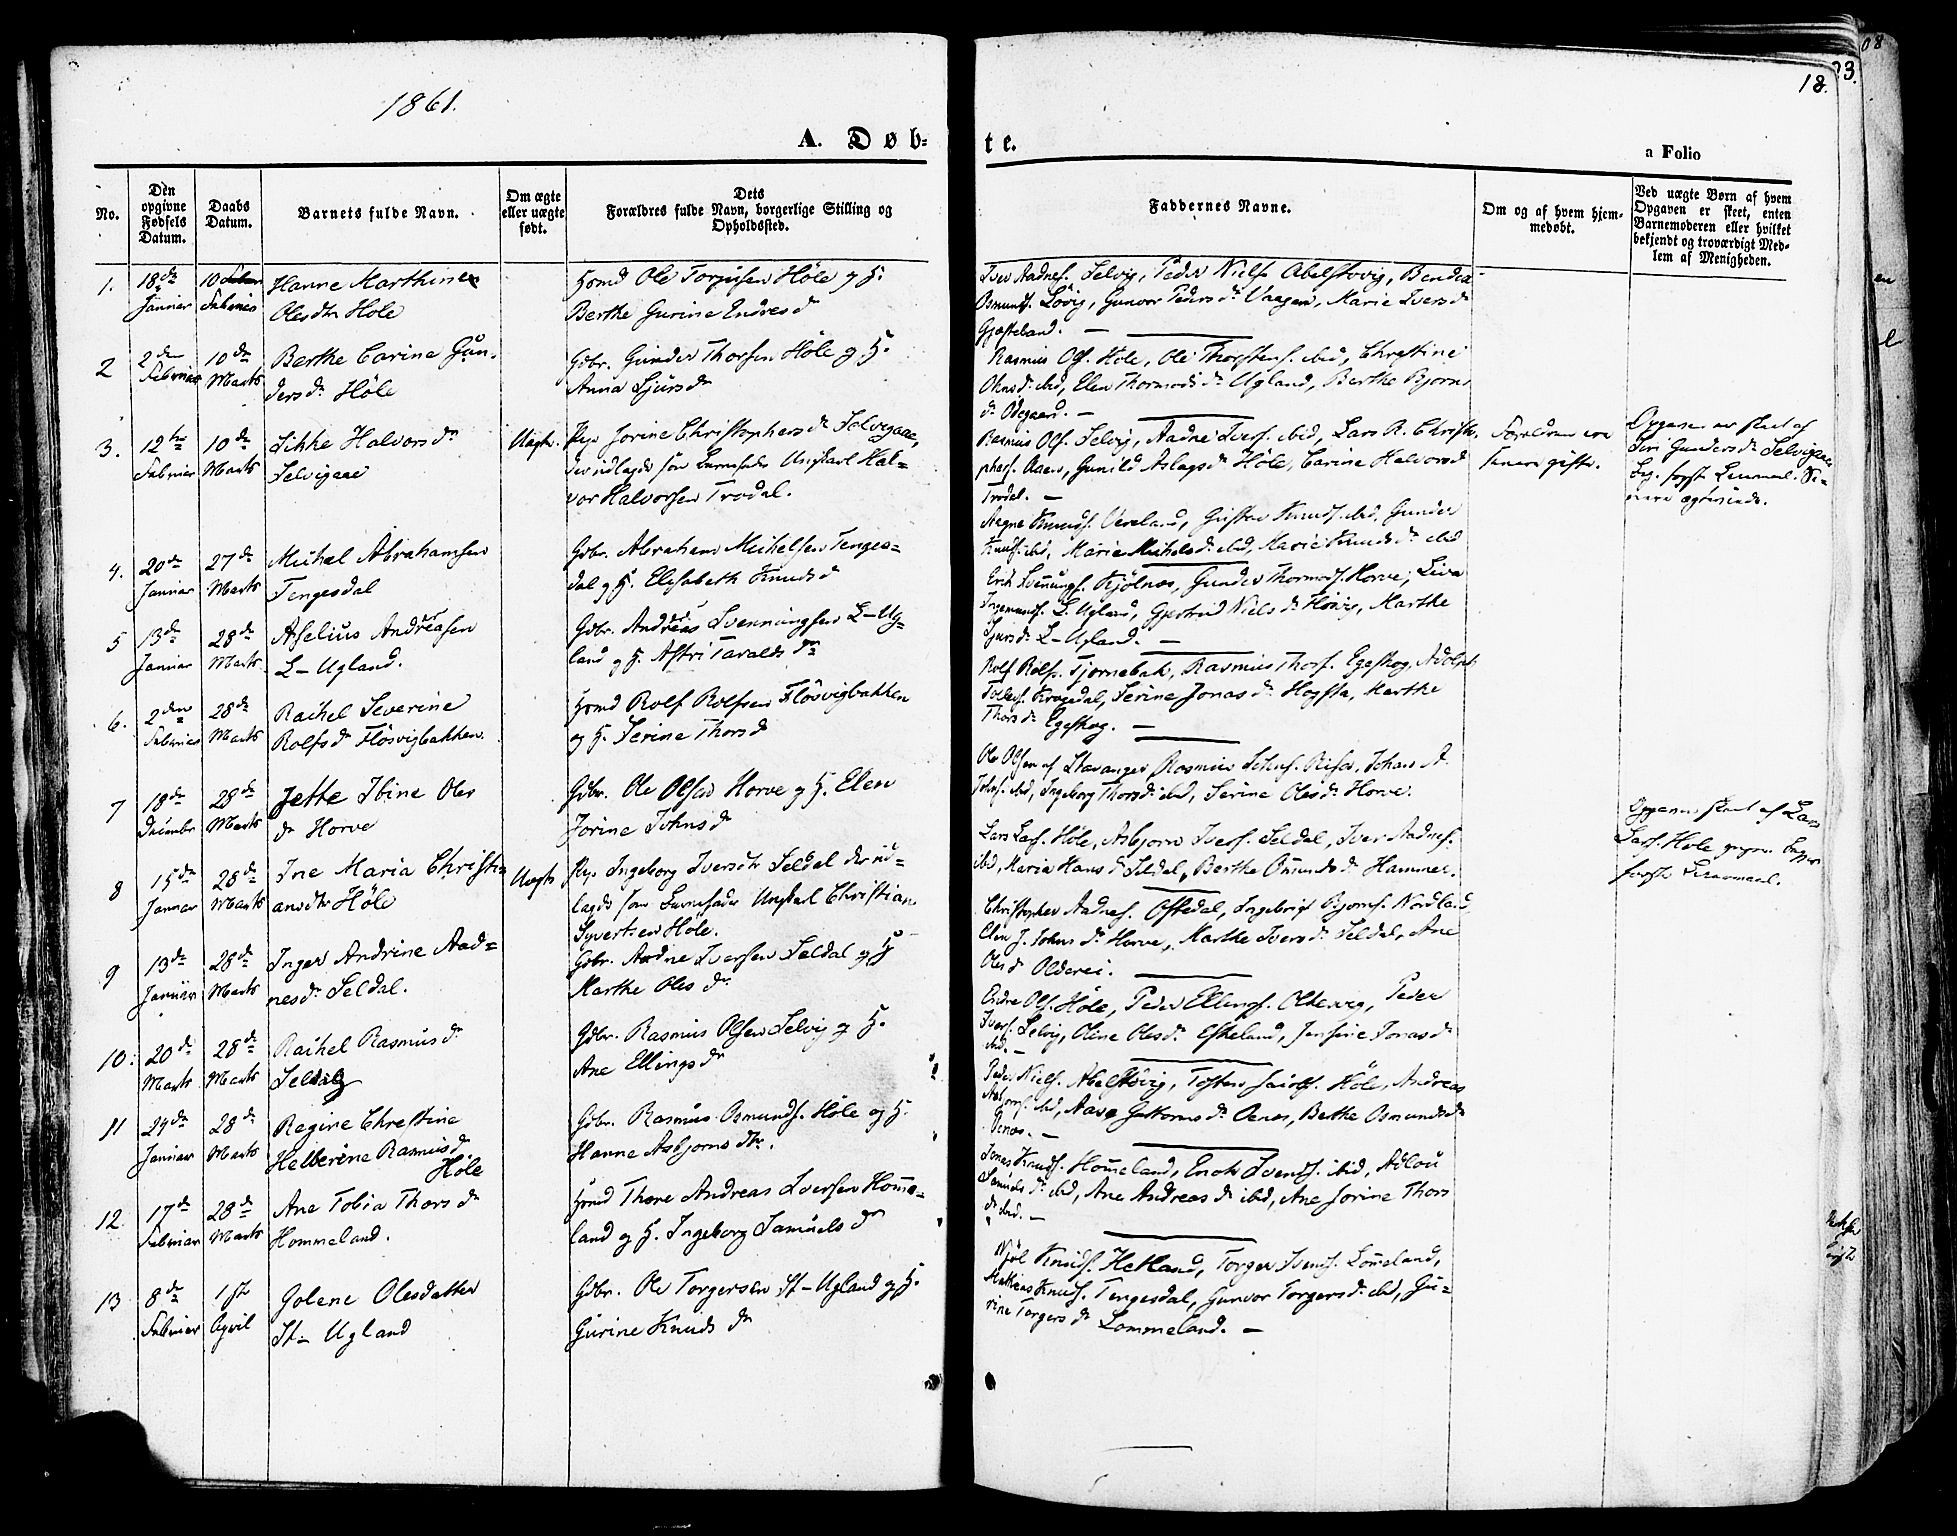 1861.
18.
A. Døb-
te.
a Folio
No.
Den opgivne Fødsels Datum.
Daabs Datum.
Barnets fulde Navn.
Om ægte eller uægte født.
Dets Forældres fulde Navn, borgerlige Stilling og Opholdssted.
Faddernes Navne.
Om og af hvem hjemmedøbt.
Ved uægte Børn af hvem Opgaven er skeet, enten Barnemoderen eller hvilket bekjendt og troværdigt Medlem af Menigheden.
1. 18de Januar
10 Februar
Hanne Marthine
Olesdtr Höle
Hsmd Ole Torjusen Höle og H.
Berthe Gurine Endresd
Iver Aadnes. Selvig, Peder Niels. Abelstvig, Bendix
Osmunds. Lövig, Gunvor Pedersdr Vaagen, Marie Iversdr
Gjesteland. —
2 2den Februar
10de Marts
Berthe Carine Gun-
dersdr Höle
Gdbr. Gunder Thorsen Höle og H.
Anna Sjursdr
Rasmus Ols. Höle, Ole Thorstens. ibid, Christine
Olnsd. ibid, Elen Thormodsdr Ugland, Berthe Bjorns
dr Ödegaard. —
3. 12te Februar
10de Marts
Sikke Halvorsdr
Selvigaae
Uægte.
Pige Jorine Christophersdr Selvigaae,
der udlagde som Barnefader Ungkarl Hal-
vor Halvorsen Trodal.
Rasmus Ols. Selvig, Aadne Ivers. ibid, Lars R. Christo-
phers. Aaen, Gunild Aslagsdr Höle, Carine Halvorsd
Trodal. —
Forældrene ere
senere gifte.
Opgaven er skeet af
Siri Gundersdr Selvigaae
Beg. første Leiermaal. Se-
nere ægteviede.
4. 20de Januar
27de Marts
Michel Abrahamsen
Tengesdal
Gdbr. Abraham Michelsen Tenges-
dal og H. Elisabeth Knudsd
Aagne Knuds. Vereland, Gustav Knuds. ibid, Gunder
Knuds. ibid, Marie Michelsdr ibid, Marie Knudsdr ibid
5 13de Januar
28de Marts
Aselius Andreasen
L-Ugland.
Gdbr. Andreas Svenningsen L-Ug-
land og H. Astri Taraldsdr
Erik Svennings. Kjölnes, Gunder Thormods. Horve, Siva
Ingemunds. L. Ugland, Gjertrud Nielsdr Hövig, Marthe
Sjursdr L-Ugland. —
6. 2den Februar
28de Marts
Rachel Severine
Rolfsdr Flösvigbakken
Hsmd Rolf Rolfsen Flösvigbakken
og H. Serine Thorsd
Rolf Rolfs. Tjornebak, Rasmus Thors. Egeskog, Adolph
Tollevs. Kragedal, Serine Jonasdr Hogsta, Marthe
Thorsdr Egeskog. —
7 18de Decembr
28de Marts
Jette Ibine Oles
dr Horve
Gdbr. Ole Olsen Horve og H. Elen
Jorine Johnsdr
Ole Olsen af Stavanger, Rasmus Johns. Riska, Johan A.
Johns. ibid, Ingeborg Thorsdr ibid, Serine Olesdr Horve.
8 15de Januar
28de Marts
Ine Maria Christi-
ansdtr Höle
Uægte
Pige Ingeborg Iversdtr Seldal der ud-
lagde som Barnefader Ungkarl Christian
Syvertsen Höle.
Lars Lars. Höle, Asbjorn Ivers. Seldal, Iver Aadnes.
ibid, Maria Hansdr Seldal, Berthe Omundsdr Hammer.
Opgaven skeet af Lars
Lars. Höle
første Leiermaal.
9 13de Januar
28de Marts
Inger Andrine Aad-
nesdr Seldal.
Gdbr. Aadne Iversen Seldal og H
Marthe Olesdr
Christopher Aadnes. Oftedal, Ingebrigt Bjorns. Nordland
Elen J. Johnsdr Horve, Marthe Iversdr Seldal, Ane
Olesdr Olderei.
10. 20de Marts
28de Marts
Rachel Rasmusdr
Selvig
Gdbr. Rasmus Olsen Selvig og H.
Ane Ellingsdr
Endre Ols. Höle, Peder Ellings. Oltesvig, Peder
Ivers. Selvig, Oline Olesdr Eskeland, Jensine Jonasdr
ibd. —
11 24de Januar
28de Marts
Regine Christine
Helberine Rasmusd.
Höle
Gdbr. Rasmus Osmunds. Höle og H.
Hanne Asbjornsdtr.
Peder Niels. Abelstvig, Tosten Jacobs. Höle, Andreas
Asbjorns. ibid, Aava Guttormsdr Oenes, Berthe Osmundsdr
Oenes. —
12. 17de Februar
28de Marts
Ane Tobia Thorsdr
Hommeland.
Hsmd Thore Andreas Iversen Homme-
land og H. Ingeborg Samuelsdr
Jonas Knuds. Hommeland, Enok Svends. ibid, Adlou
Samuelsdr ibid, Ane Andreasdr ibid, Ane Jorine Thors
dr ibid. —
13 8de Februar
1ste April
Golene Olesdatter
St- Ugland
Gdbr. Ole Torgersen St-Ugland og H.
Gurine Knudsdr
Njöl Knuds. Hetland, Torger Svends. Lommeland,
Mathias Knuds. Tengesdal, Gunvor Torgersdr ibid, Gu-
rine Torgersdr Lommeland. —